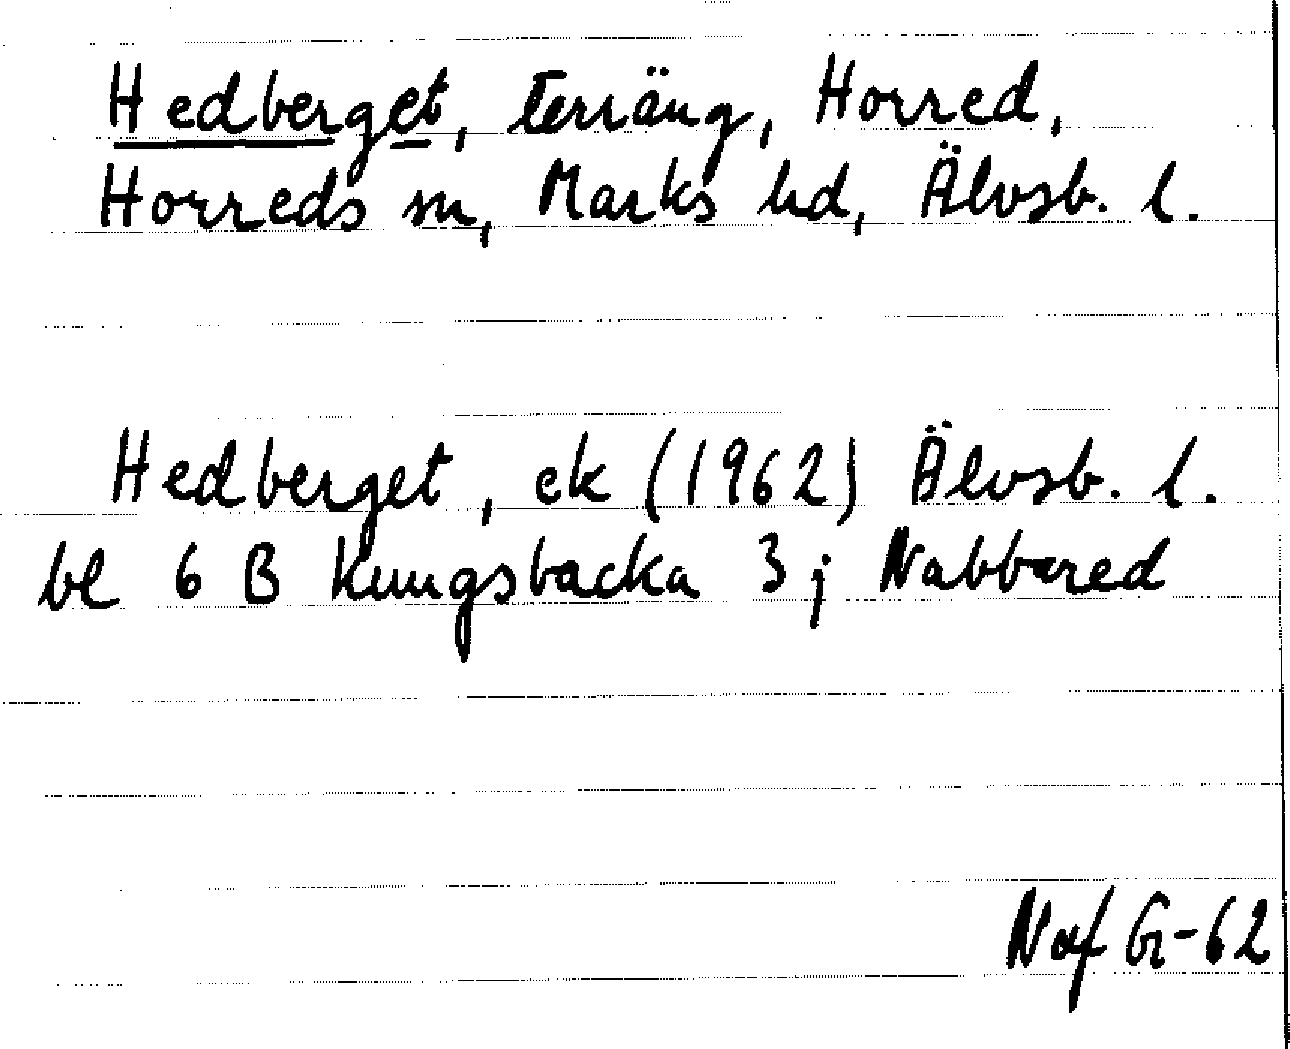 Hedberget, terräng, Horred,
Horreds sn, Marks hd, Älvsb. l.
Hedberget, ek (1962) Älvsb. l.
bl 6 B Kungsbacka 3 j Nabbared
Naf G-62